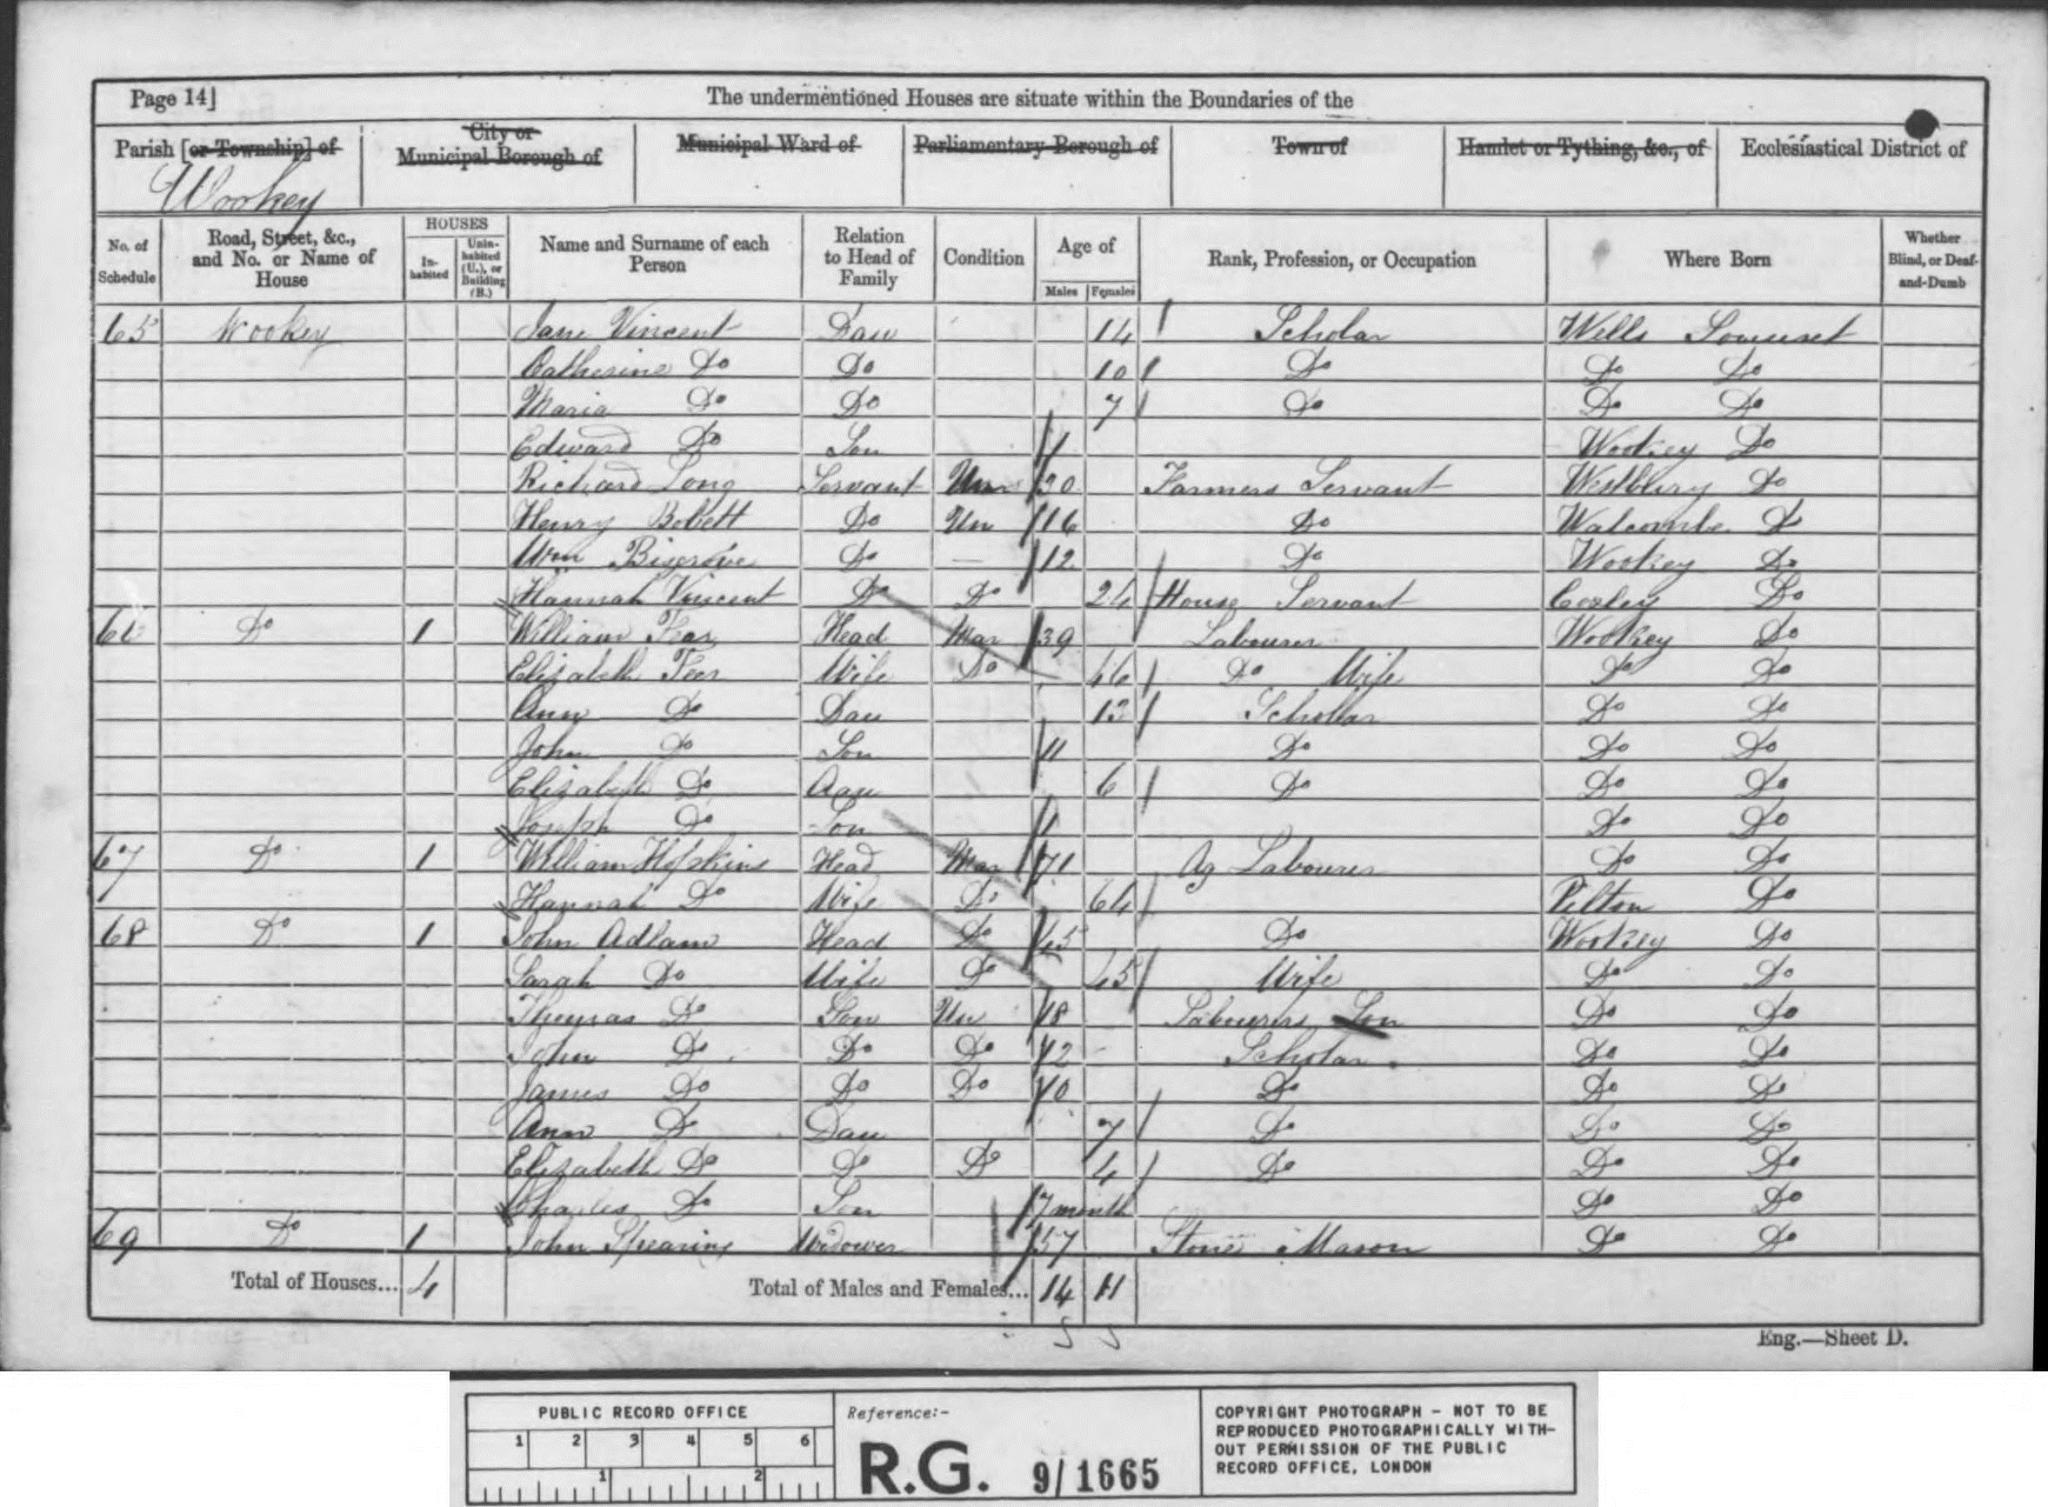 Page 14]
The undermentioned Houses are situate within the Boundaries of the
Parish [or Township] of
City or
Municipal Borough of
Municipal Ward of
Parliamentary Borough of
Town of
Hamlet or Tything, &c., of
Ecclesiastical District of
Wookey
No. of Schedule
Road, Street, &c., and No. or Name of House
HOUSES
In-habited
Unin-habited (U.), or Building (B.)
Name and Surname of each Person
Relation to Head of Family
Condition
Age of
Males
Females
Rank, Profession, or Occupation
Where Born
Whether Blind, or Deaf-and-Dumb
65 Wookey Jane Vincent Dau 14 Scholar Wells Somerset
Catherine Do Do 10 Do Do Do
Maria Do Do 7 Do Do Do
Edward Do Son 1 Wookey Do
Richard Long Servant Un 30 Farmers Servant Westbury Do
Henry Bobett Do Un 16 Do Walcombe Do
Wm Bisgrove Do — 12 Do Wookey Do
Hannah Vincent Do Do 24 House Servant Coxley Do
66 Do 1 William Fear Head Mar 39 Labourer Wookey Do
Elizabeth Fear Wife Do 46 Do Wife Do Do
Ann Do Dau 13 Scholar Do Do
John Do Son 11 Do Do Do
Elizabeth Do Dau 6 Do Do Do
Joseph Do Son 1 Do Do
67 Do 1 William Hopkins Head Mar 71 Ag Labourer Do Do
Hannah Do Wife Do 64 Pilton Do
68 Do 1 John Adlam Head Do 45 Do Wookey Do
Sarah Do Wife Do 45 Wife Do Do
Thomas Do Son Un 18 Labourers Son Do Do
John Do Do Do 12 Scholar Do Do
James Do Do Do 10 Do Do Do
Ann Do Dau 7 Do Do Do
Elizabeth Do Do Do 4 Do Do Do
Charles Do Son 7 month Do Do
69 Do 1 John Spearing Widower 57 Stone Mason Do Do
Total of Houses... 4 Total of Males and Females... 14 11
Eng.—Sheet D.
PUBLIC RECORD OFFICE
1 2 3 4 5 6
1 2
Reference:-
R.G. 9/1665
COPYRIGHT PHOTOGRAPH - NOT TO BE
REPRODUCED PHOTOGRAPHICALLY WITH-
OUT PERMISSION OF THE PUBLIC
RECORD OFFICE, LONDON